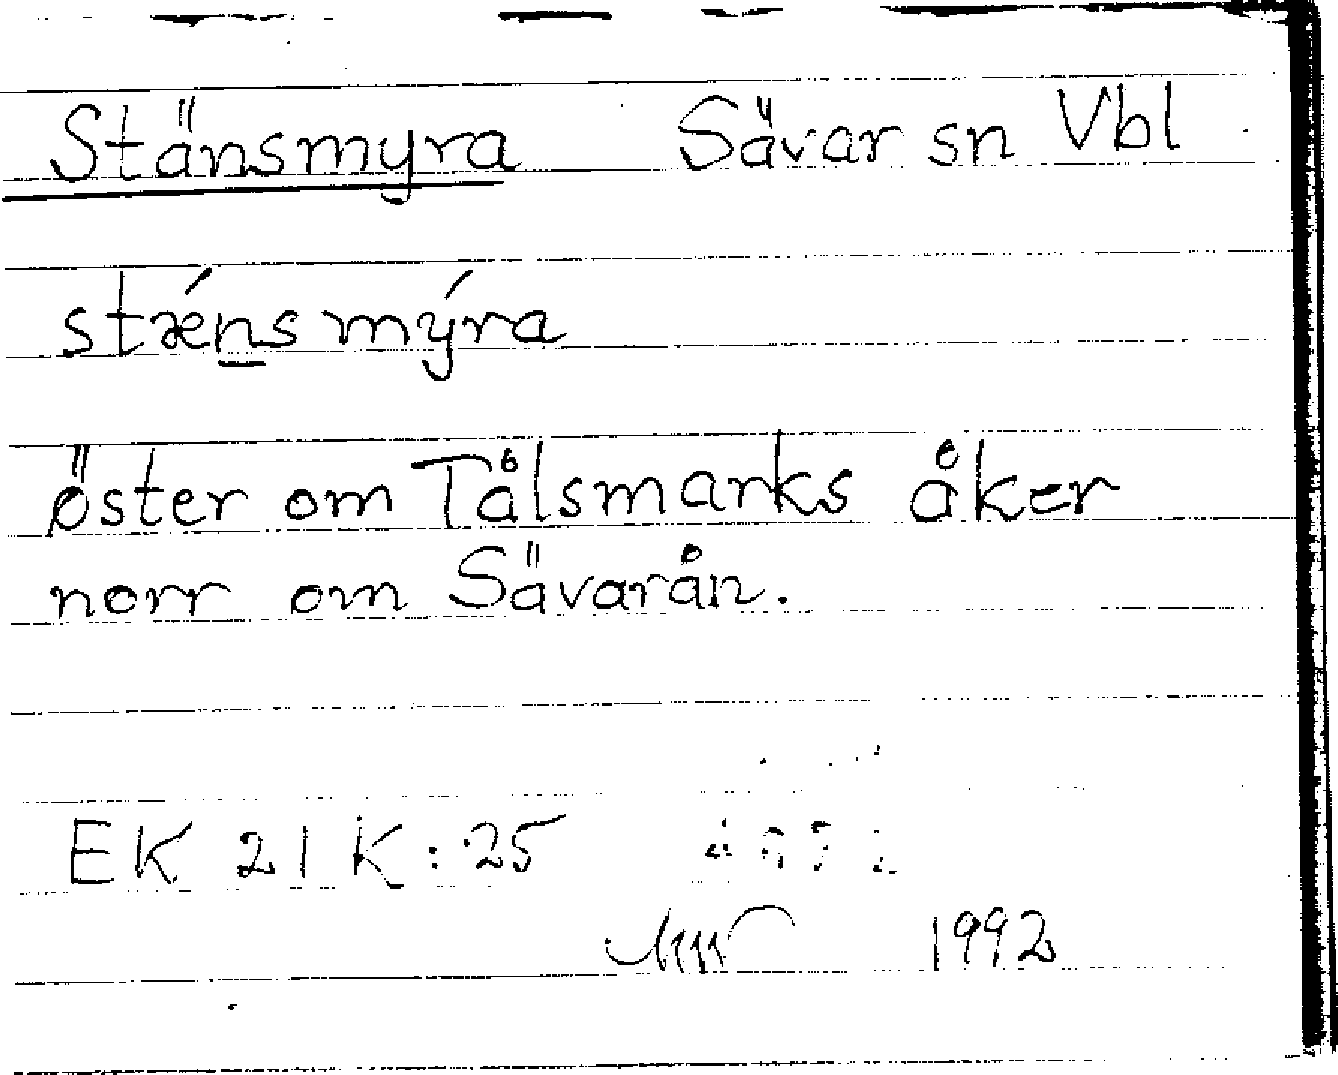 Stänsmyra Sävar sn Vbl
stǽns mýra
öster om Tålsmarks åker
norr om Sävarån.
EK 21 K:25
1992